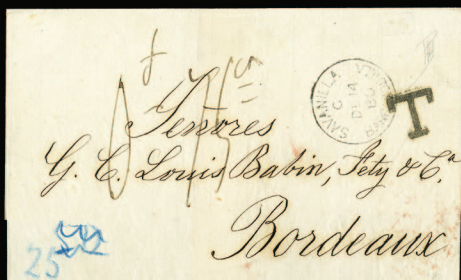 SAVANILLA
C
DE 14
80
T
Senores
G. C. Louis Babin, Fety & Cª
Bordeaux
25